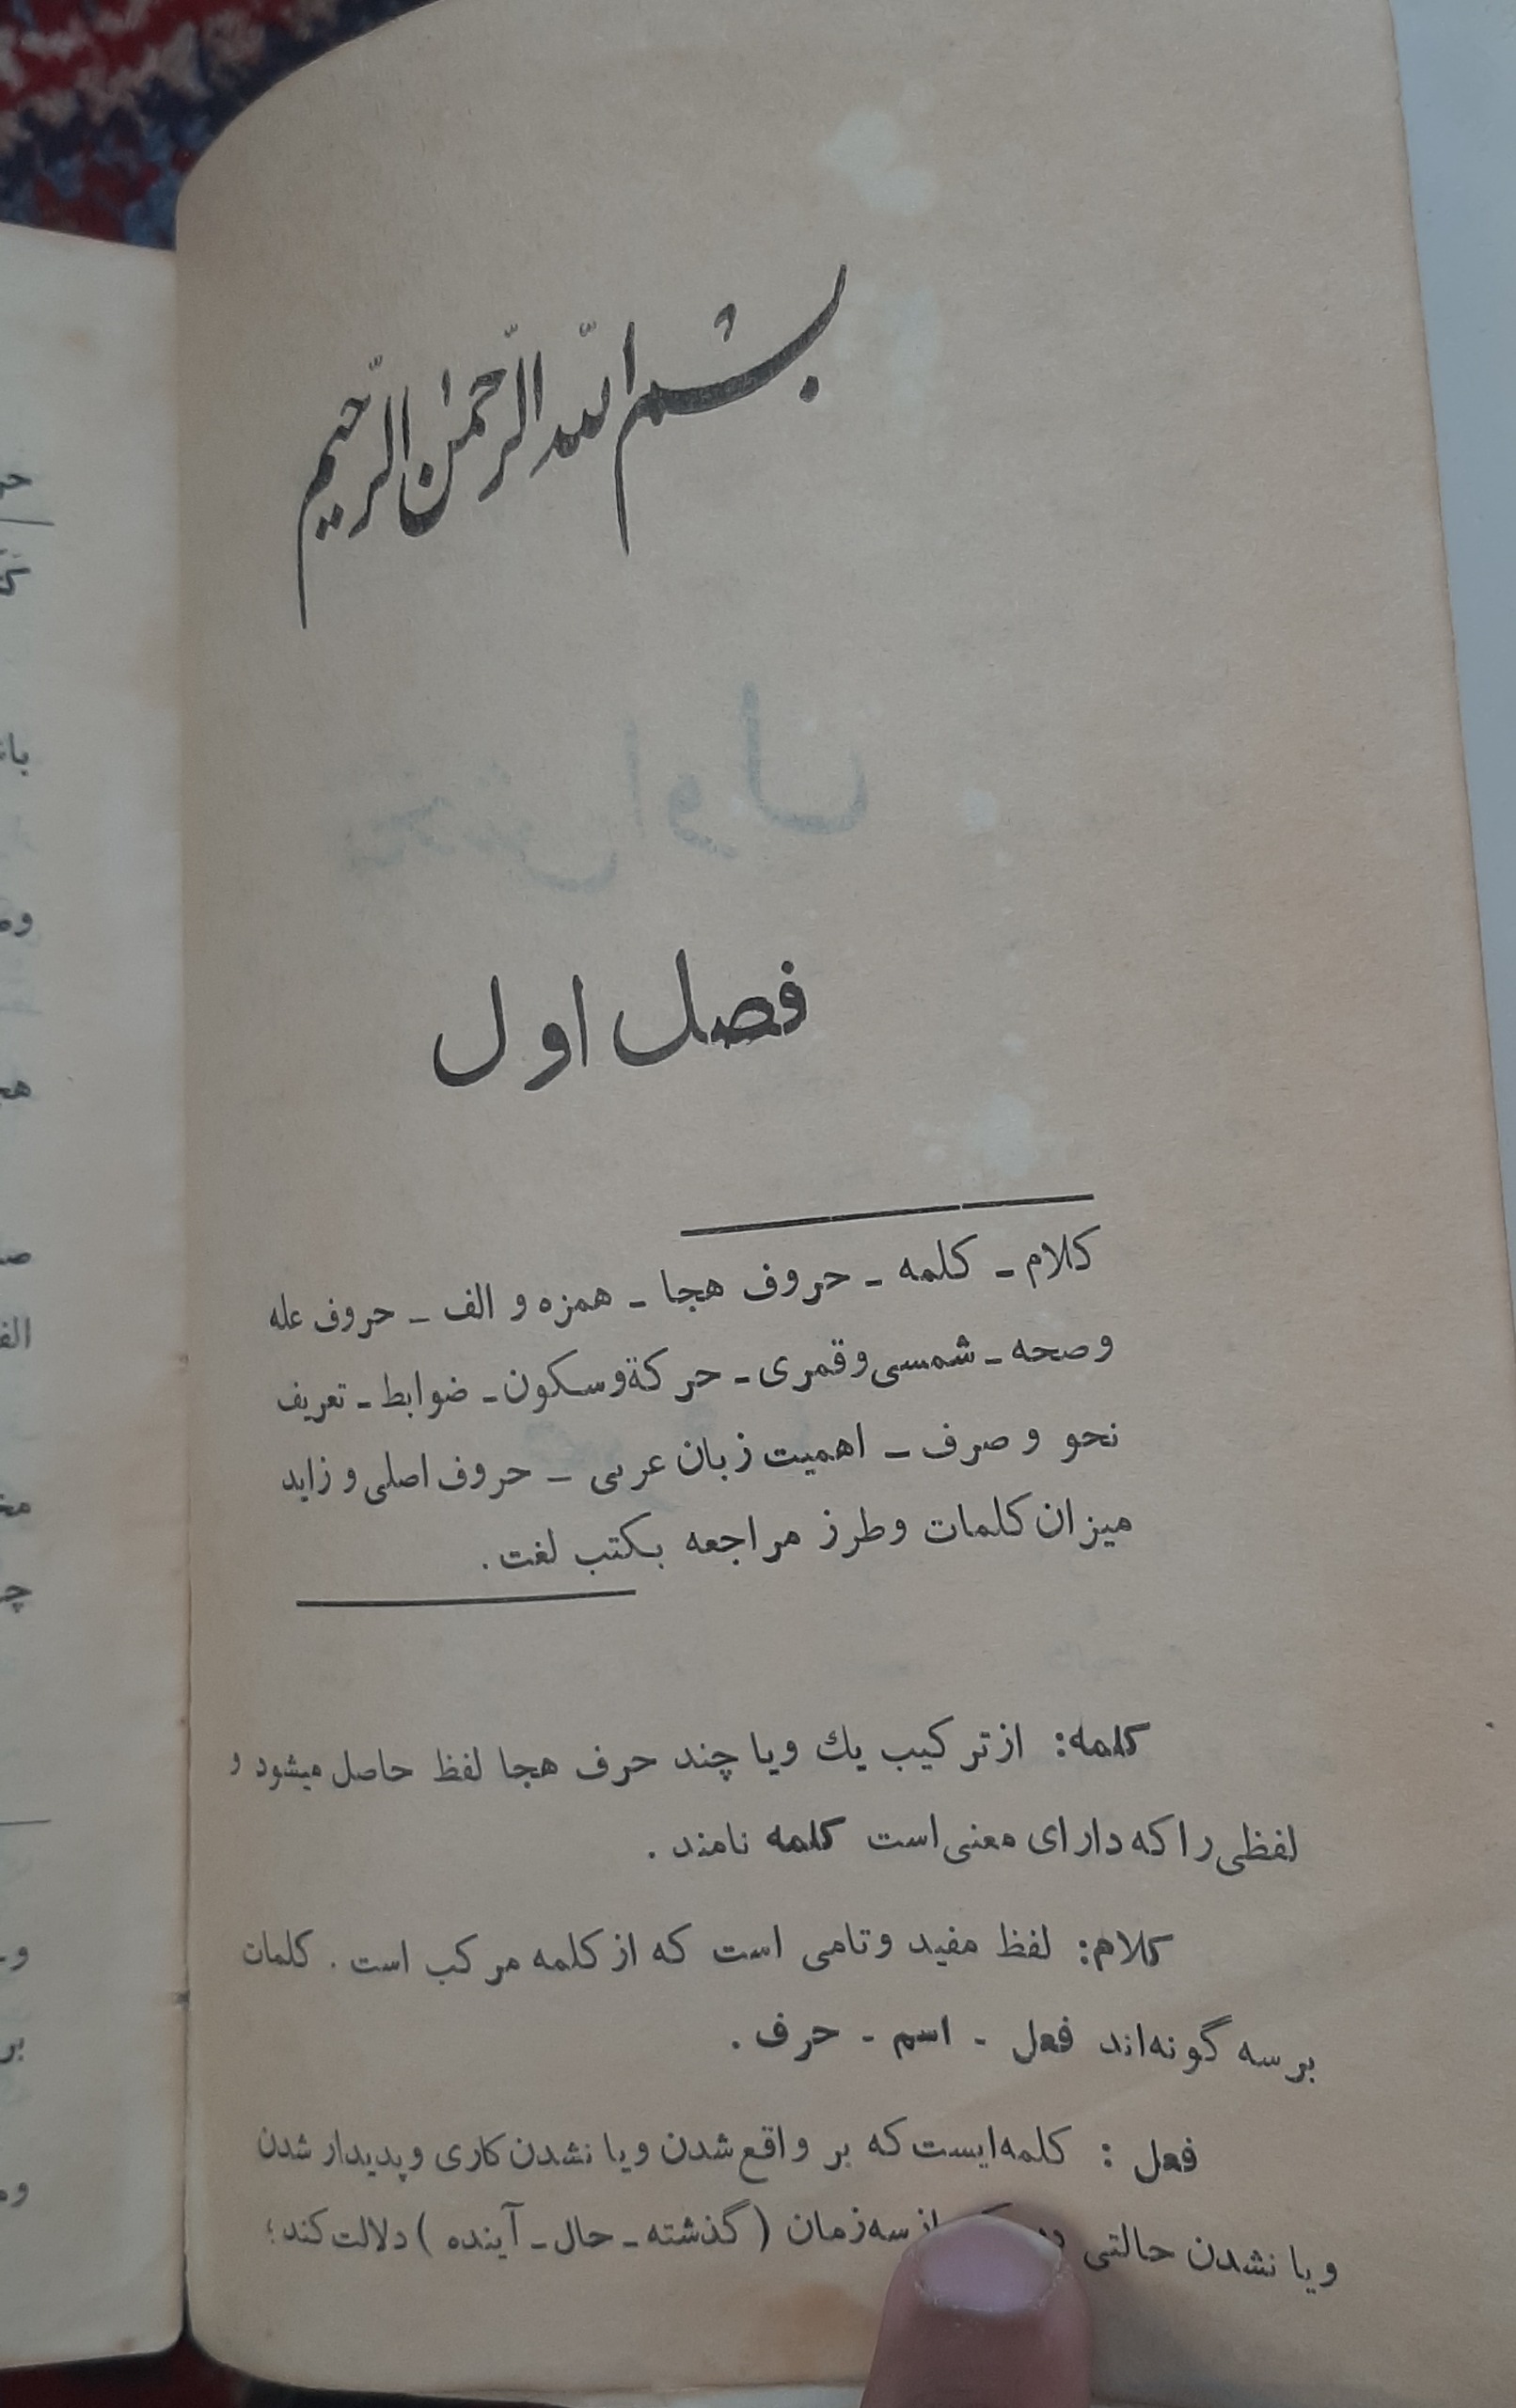 بسم الله الرّحمٰن الرّحیم
فصل اول
کلام ـ کلمه ـ حروف هجا ـ همزه و الف ـ حروف عله
وصحه ـ شمسی وقمری ـ حرکةوسکون ـ ضوابط ـ تعریف
نحو و صرف ـ اهمیت زبان عربی ـ حروف اصلی و زاید
میزان کلمات وطرز مراجعه بکتب لغت .
کلمه: از ترکیب یك ویا چند حرف هجا لفظ حاصل میشود و
لفظی را که دارای معنی است کلمه نامند .
کلام: لفظ مفید وتامی است که از کلمه مرکب است . کلمات
بر سه گونه‌اند فعل ـ اسم ـ حرف .
فعل : کلمه‌ایست که بر واقع شدن ویا نشدن کاری وپدیدار شدن
ویا نشدن حالتی از سه‌زمان ( گذشته ـ حال ـ آینده ) دلالت کند؛